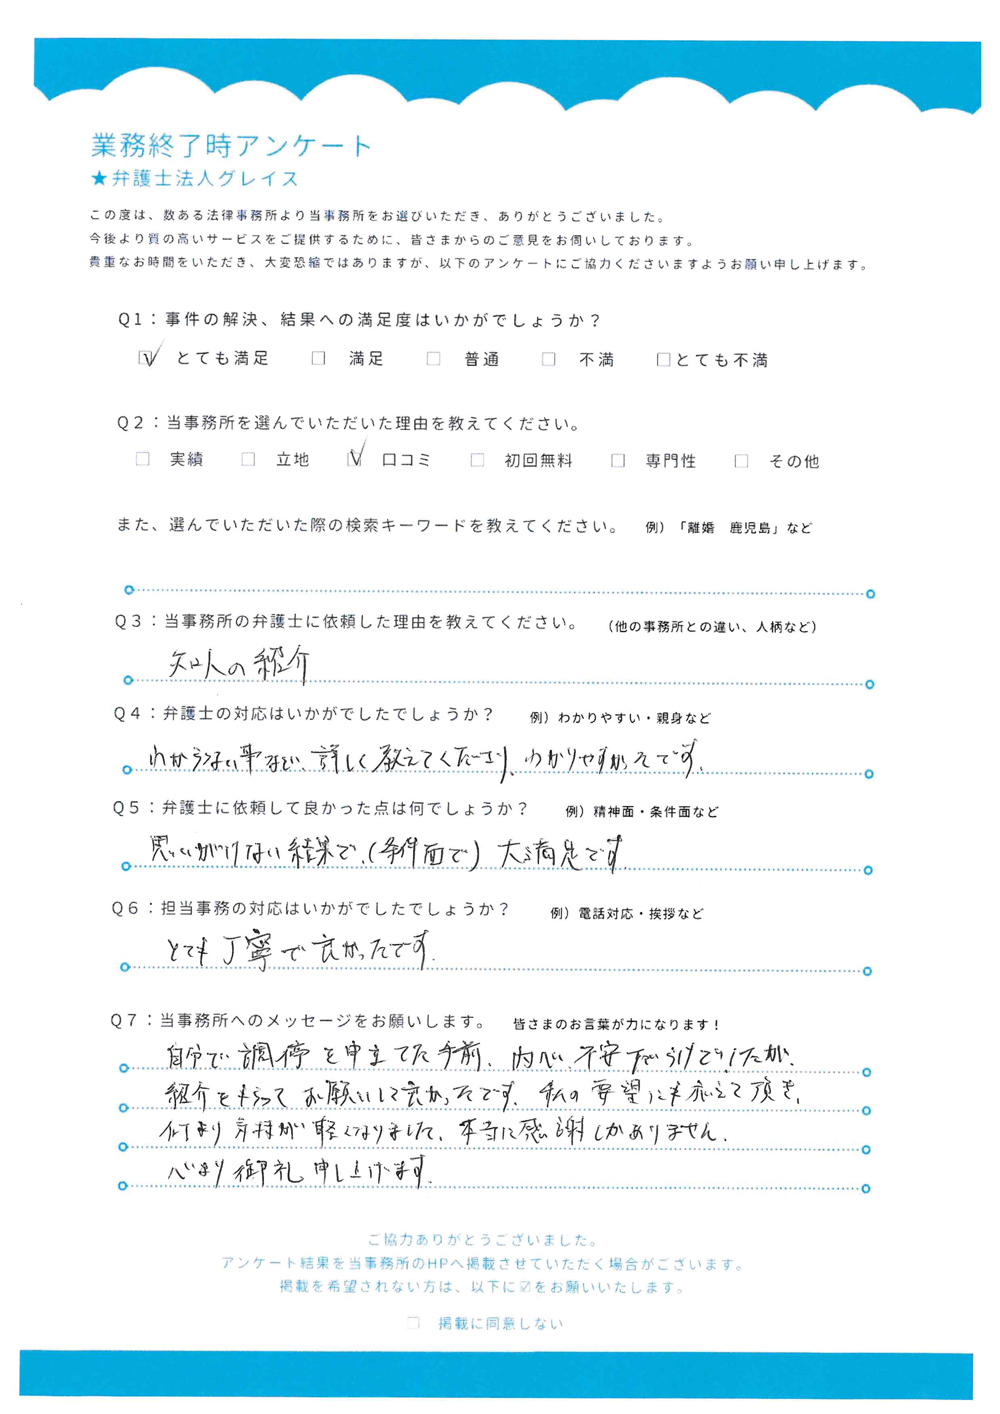 業務終了時アンケート
★弁護士法人グレイス
この度は、数ある法律事務所より当事務所をお選びいただき、ありがとうございました。
今後より質の高いサービスをご提供するために、皆さまからのご意見をお伺いしております。
貴重なお時間をいただき、大変恐縮ではありますが、以下のアンケートにご協力くださいますようお願い申し上げます。
Q1：事件の解決、結果への満足度はいかがでしょうか？
☑ とても満足 □ 満足 □ 普通 □ 不満 □とても不満
Q2：当事務所を選んでいただいた理由を教えてください。
□ 実績 □ 立地 ☑ 口コミ □ 初回無料 □ 専門性 □ その他
また、選んでいただいた際の検索キーワードを教えてください。 例）「離婚 鹿児島」など
Q3：当事務所の弁護士に依頼した理由を教えてください。 （他の事務所との違い、人柄など）
知人の紹介
Q4：弁護士の対応はいかがでしたでしょうか？ 例）わかりやすい・親身など
わからない事など、詳しく教えてくださり、わかりやすかったです。
Q5：弁護士に依頼して良かった点は何でしょうか？ 例）精神面・条件面など
思いがけない結果で、（条件面で）大満足です
Q6：担当事務の対応はいかがでしたでしょうか？ 例）電話対応・挨拶など
とても丁寧で良かったです。
Q7：当事務所へのメッセージをお願いします。 皆さまのお言葉が力になります！
自分で調停を申立てた手前、内心、不安だらけでしたが、
紹介をもらってお願いして良かったです。私の要望にも応えて頂き、
何より気持が軽くなりました。本当に感謝しかありません。
心より御礼申し上げます。
ご協力ありがとうございました。
アンケート結果を当事務所のHPへ掲載させていただく場合がございます。
掲載を希望されない方は、以下に☑をお願いいたします。
□ 掲載に同意しない